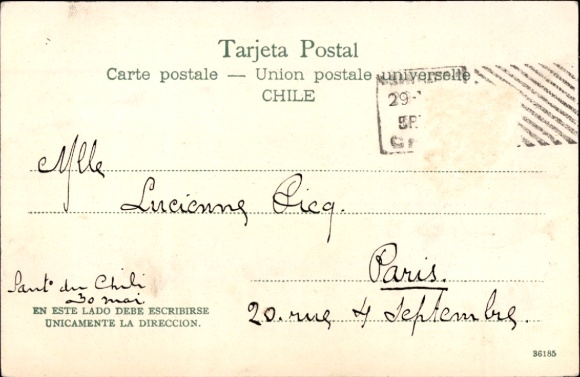 Tarjeta Postal
Carte postale — Union postale universelle
CHILE
29
Mlle
Lucienne Picq.
Paris.
20. rue 4 Septembre.
Santo du Chili
30 mai
EN ESTE LADO DEBE ESCRIBIRSE
ÚNICAMENTE LA DIRECCION.
36185